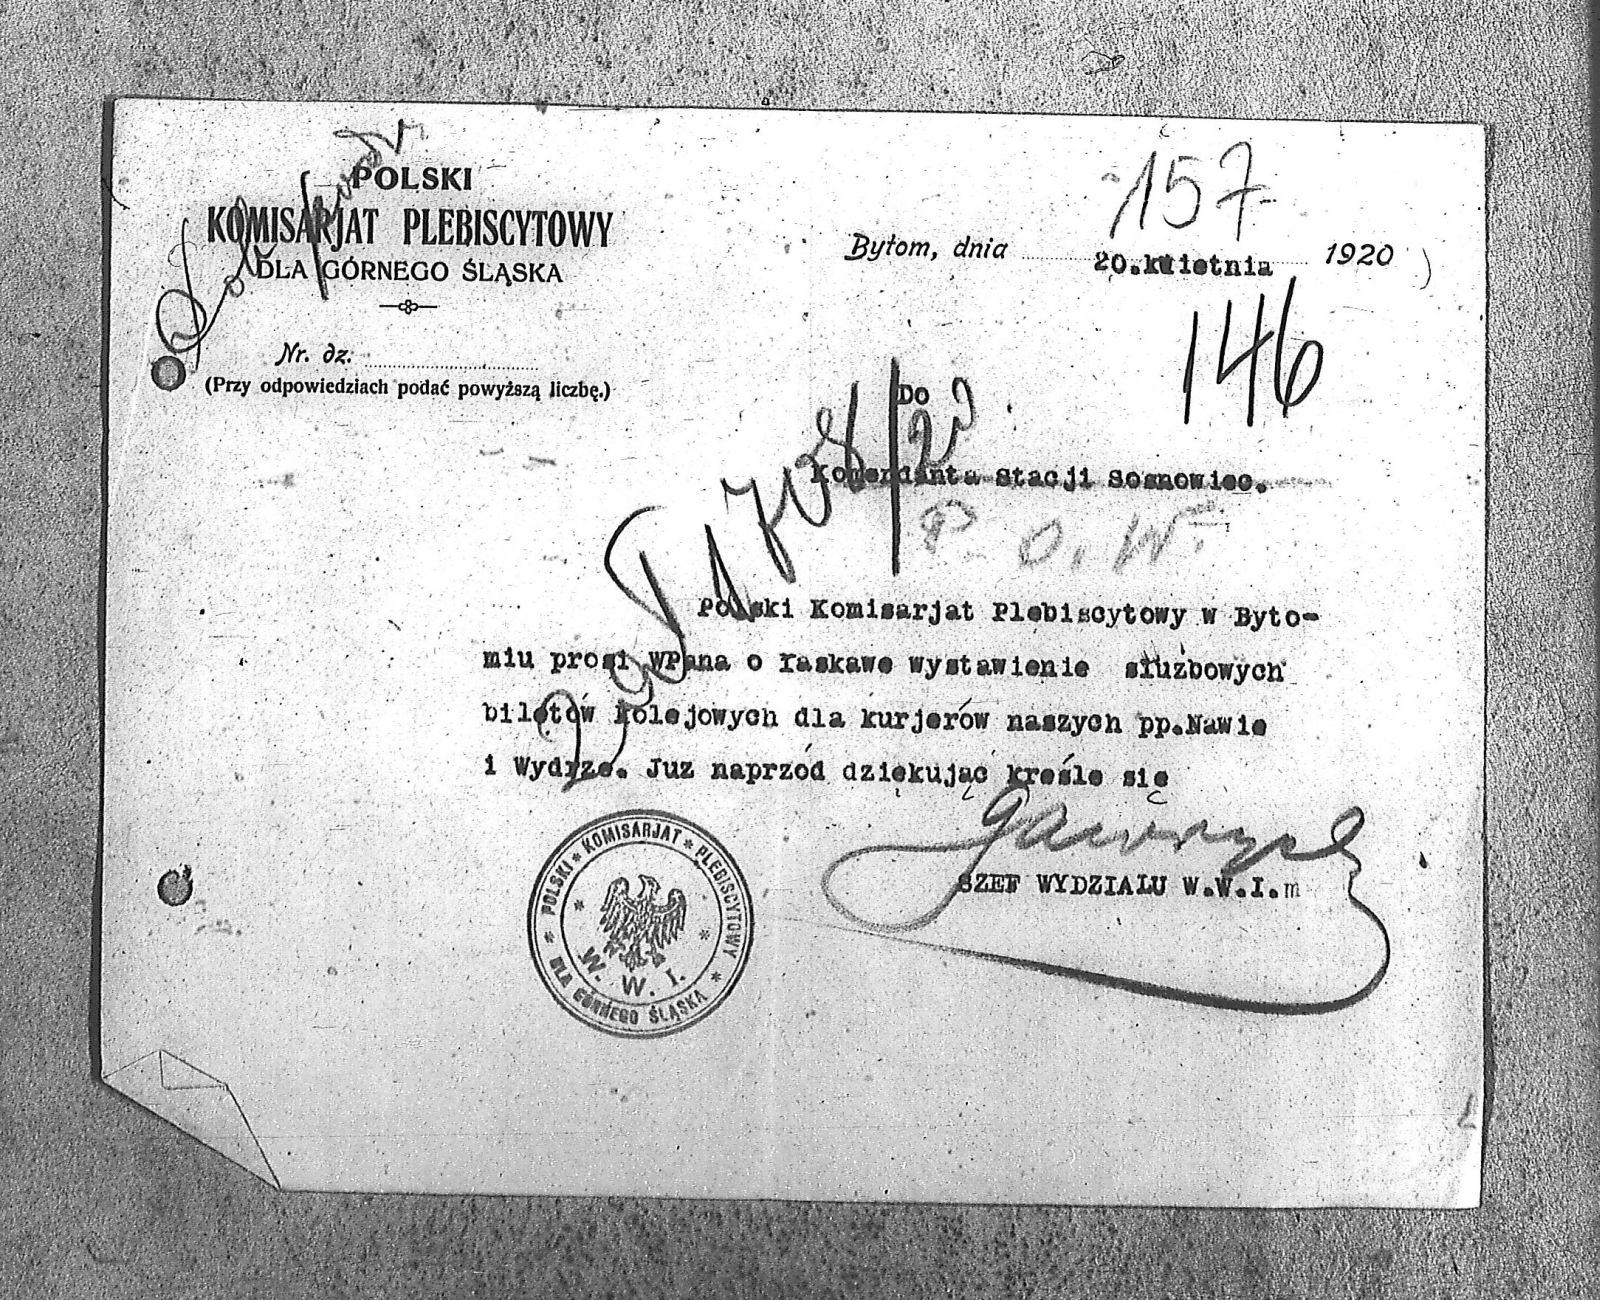 POLSKI
KOMISARJAT PLEBISCYTOWY
DLA GÓRNEGO ŚLĄSKA
Nr. dz.
(Przy odpowiedziach podać powyższą liczbę.)
157
Bytom, dnia 20.kwietnia 1920
146
Do
Komendanta Stacji Sosnowiec.
P. O. W.
Polski Komisarjat Plebiscytowy w Byto-
miu prosi WPana o łaskawe wystawienie służbowych
biletów kolejowych dla kurjerów naszych pp.Nawie
i Wydrze. Już naprzód dziękując kreśle się
SZEF WYDZIAŁU W.W.I.m
* POLSKI * KOMISARJAT * PLEBISCYTOWY * DLA GÓRNEGO ŚLĄSKA
W. W. I.